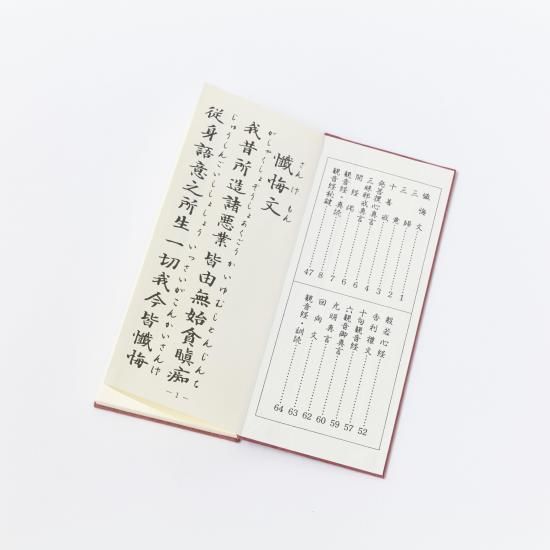 懺悔文 1
三帰 2
三竟 3
十善戒 4
発菩提心真言 6
三昧耶戒真言 6
開経偈 7
観音経・真読 8
観音経秘鍵 47
般若心経 52
舎利禮文 57
十句観音経 59
六観音御真言 60
光明真言 62
回向文 63
観音経・訓読 64
さんげもん
懺悔文
がしゃくしょぞうしょあくごうかいゆむしとんじんち
我昔所造諸悪業 皆由無始貪瞋痴
じゅうしんごいししょしょう いっさいがこんかいさんげ
従身語意之所生 一切我今皆懺悔
-1-